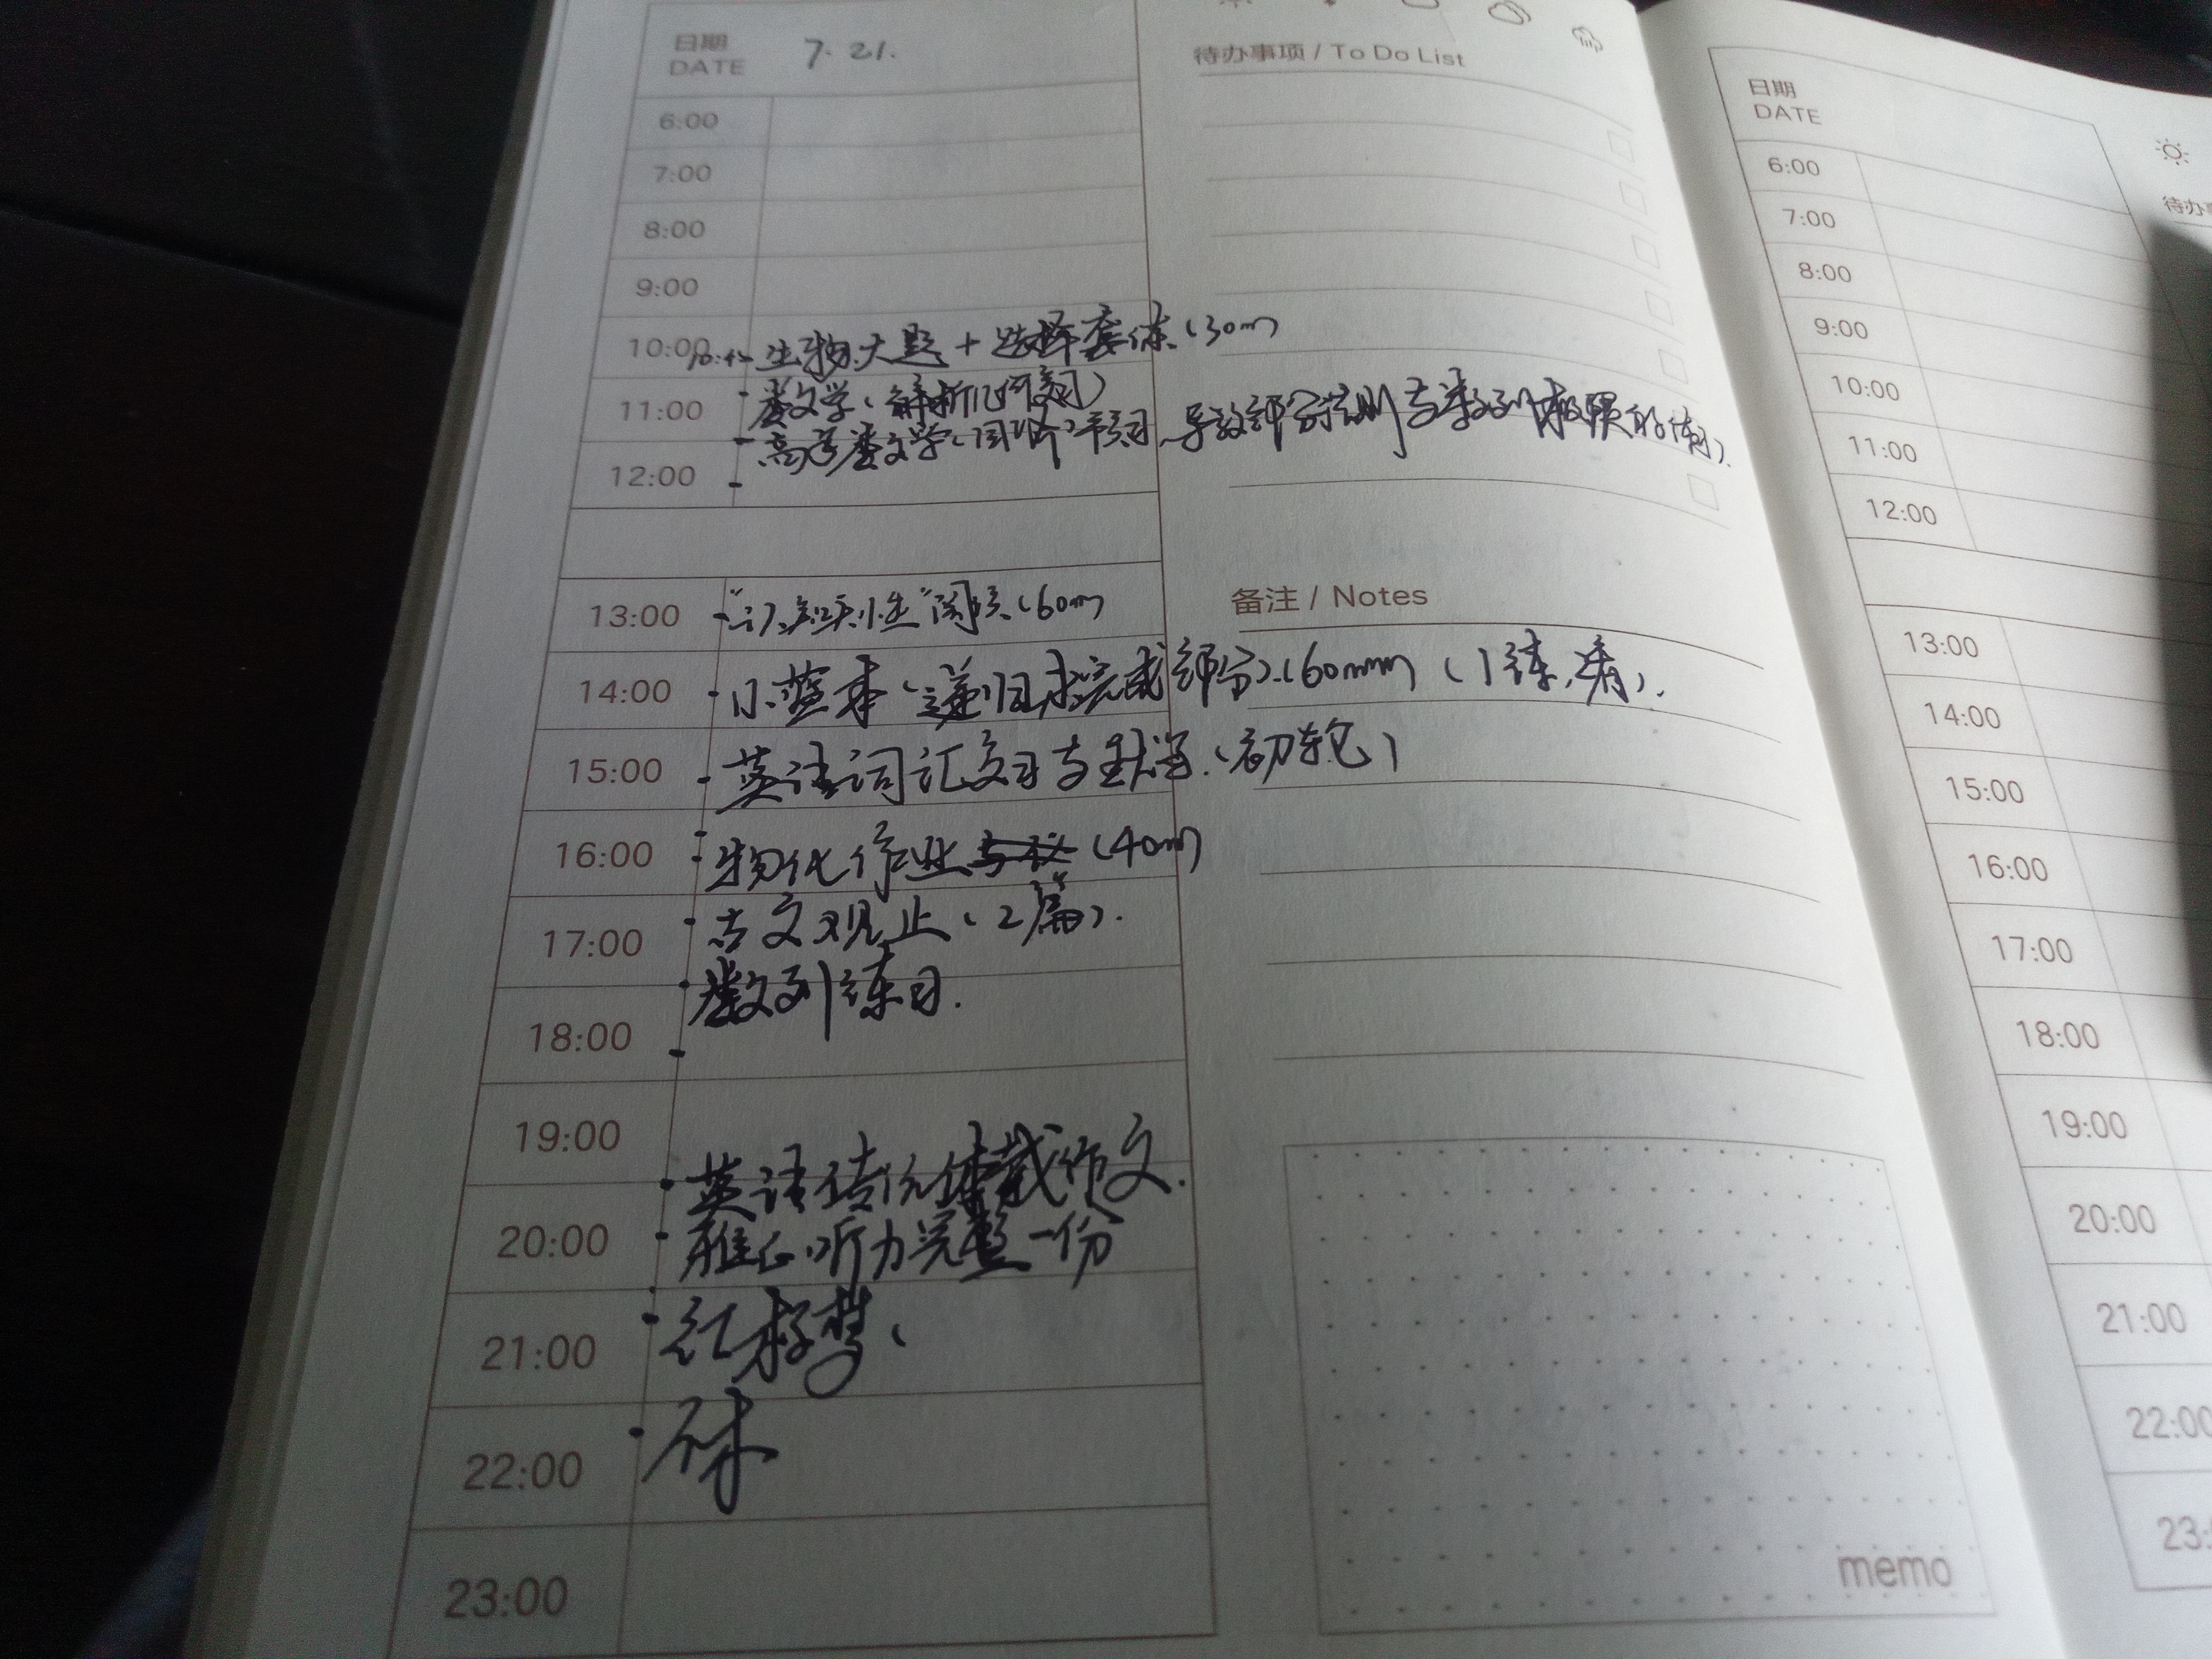 日期
DATE
7. 21.
待办事项 / To Do List
6:00
7:00
8:00
9:00
10:00 生物大题 + 选择套练 (30m)
11:00 数学 (解析几何复习)
高等数学 导数部分法则与数列极限
12:00
13:00 阅读 (60m)
备注 / Notes
14:00 小蓝本 (递归未完成部分) (60min)
15:00 英语词汇复习与 (初轮)
16:00 物化作业 (40m)
17:00 古文观止 (2篇).
数列练习.
18:00
19:00
英语 体裁作文.
20:00 雅思听力完整一份
21:00 红楼梦
22:00 休
23:00
memo
日期
DATE
6:00
7:00
8:00
9:00
10:00
11:00
12:00
13:00
14:00
15:00
16:00
17:00
18:00
19:00
20:00
21:00
22:00
待办